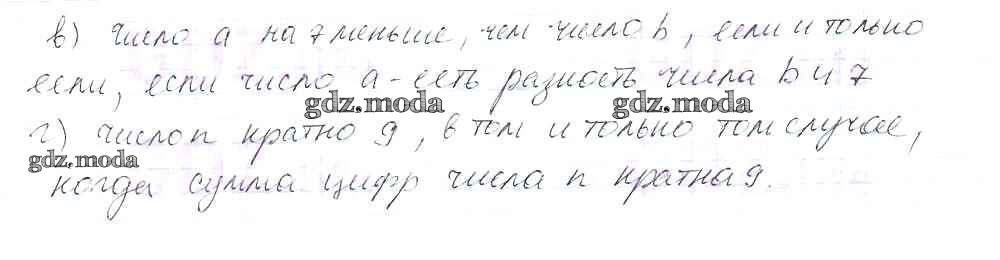 в) число a на 7 меньше, чем число b, если и только
если, если число a - есть разность числа b и 7
gdz.moda gdz.moda
г) число n кратно 9, в том и только том случае,
gdz.moda
когда сумма цифр числа n кратна 9.